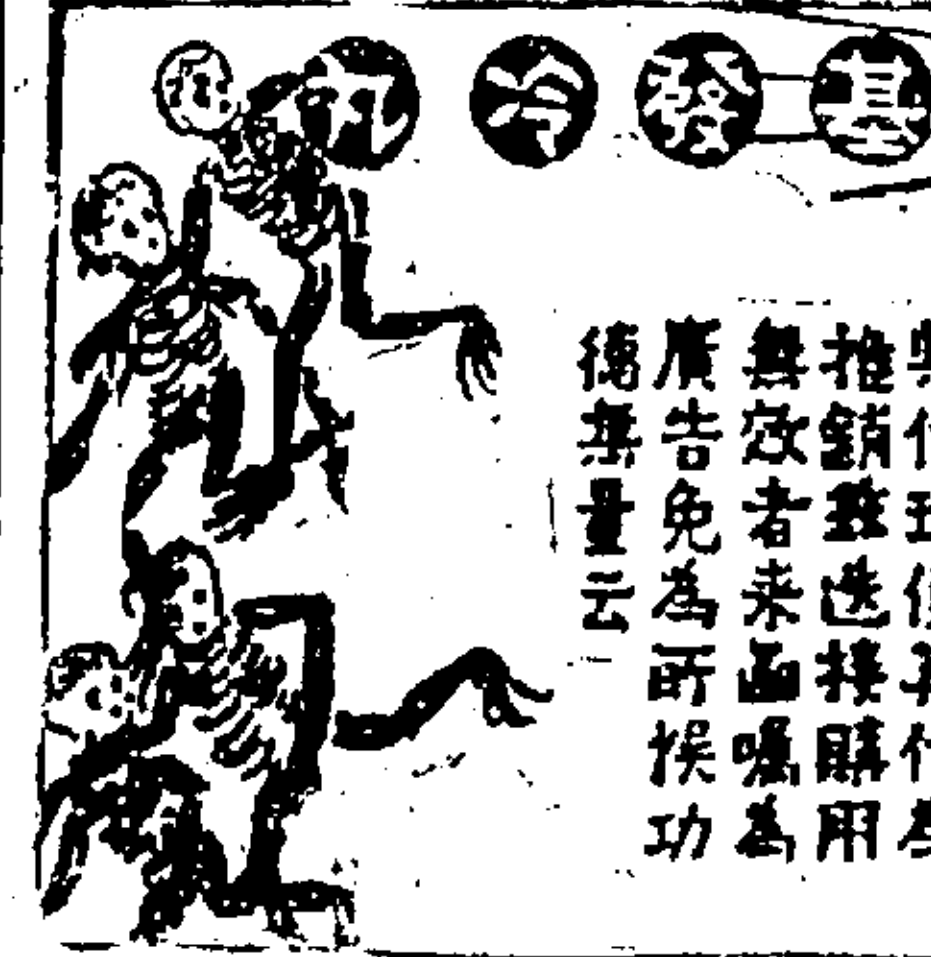 發冷丸
推銷雖迭接購用
無效者来函囑為
廣告免為所悮功
德無量云